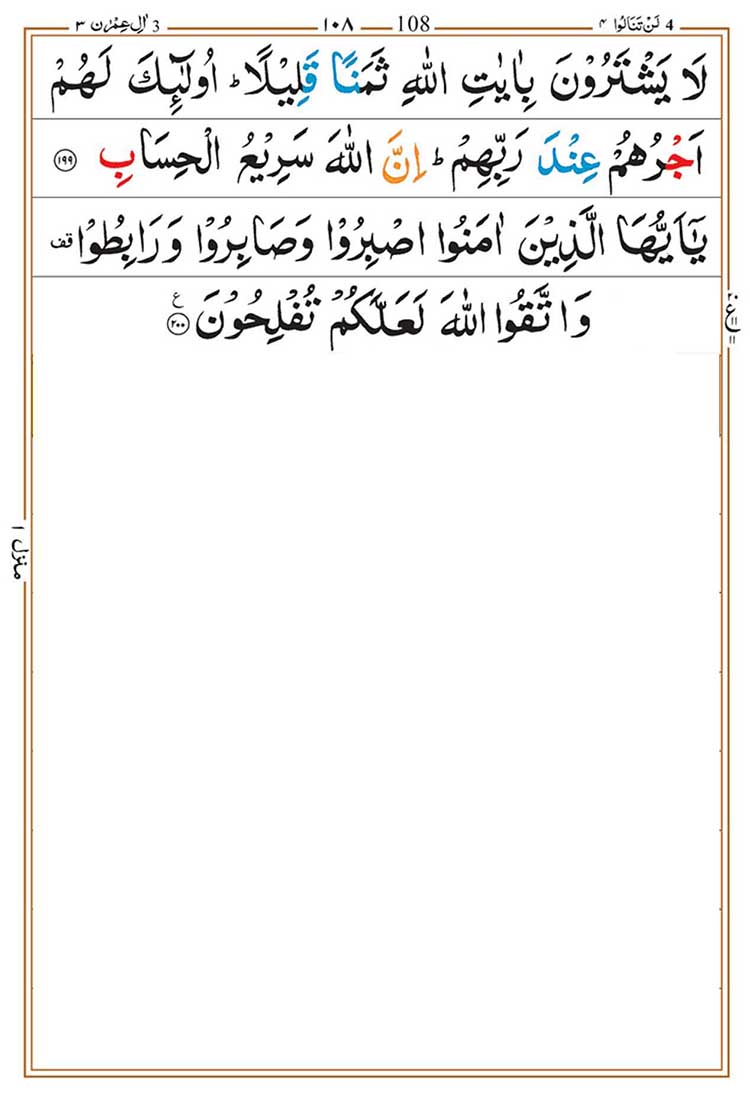 4 لَنْ تَنَالُوا ۴ 108 ١٠٨ 3 اٰلِ عِمْرٰن ٣
لَا يَشْتَرُوْنَ بِاٰيٰتِ اللّٰهِ ثَمَنًا قَلِيْلًا ؕ اُولٰٓئِكَ لَهُمْ
اَجْرُهُمْ عِنْدَ رَبِّهِمْ ؕ اِنَّ اللّٰهَ سَرِيْعُ الْحِسَابِ ۝١٩٩
يٰۤاَيُّهَا الَّذِيْنَ اٰمَنُوا اصْبِرُوْا وَصَابِرُوْا وَرَابِطُوْا قف
وَاتَّقُوا اللّٰهَ لَعَلَّكُمْ تُفْلِحُوْنَ ۝٢٠٠ ع
منزل ١